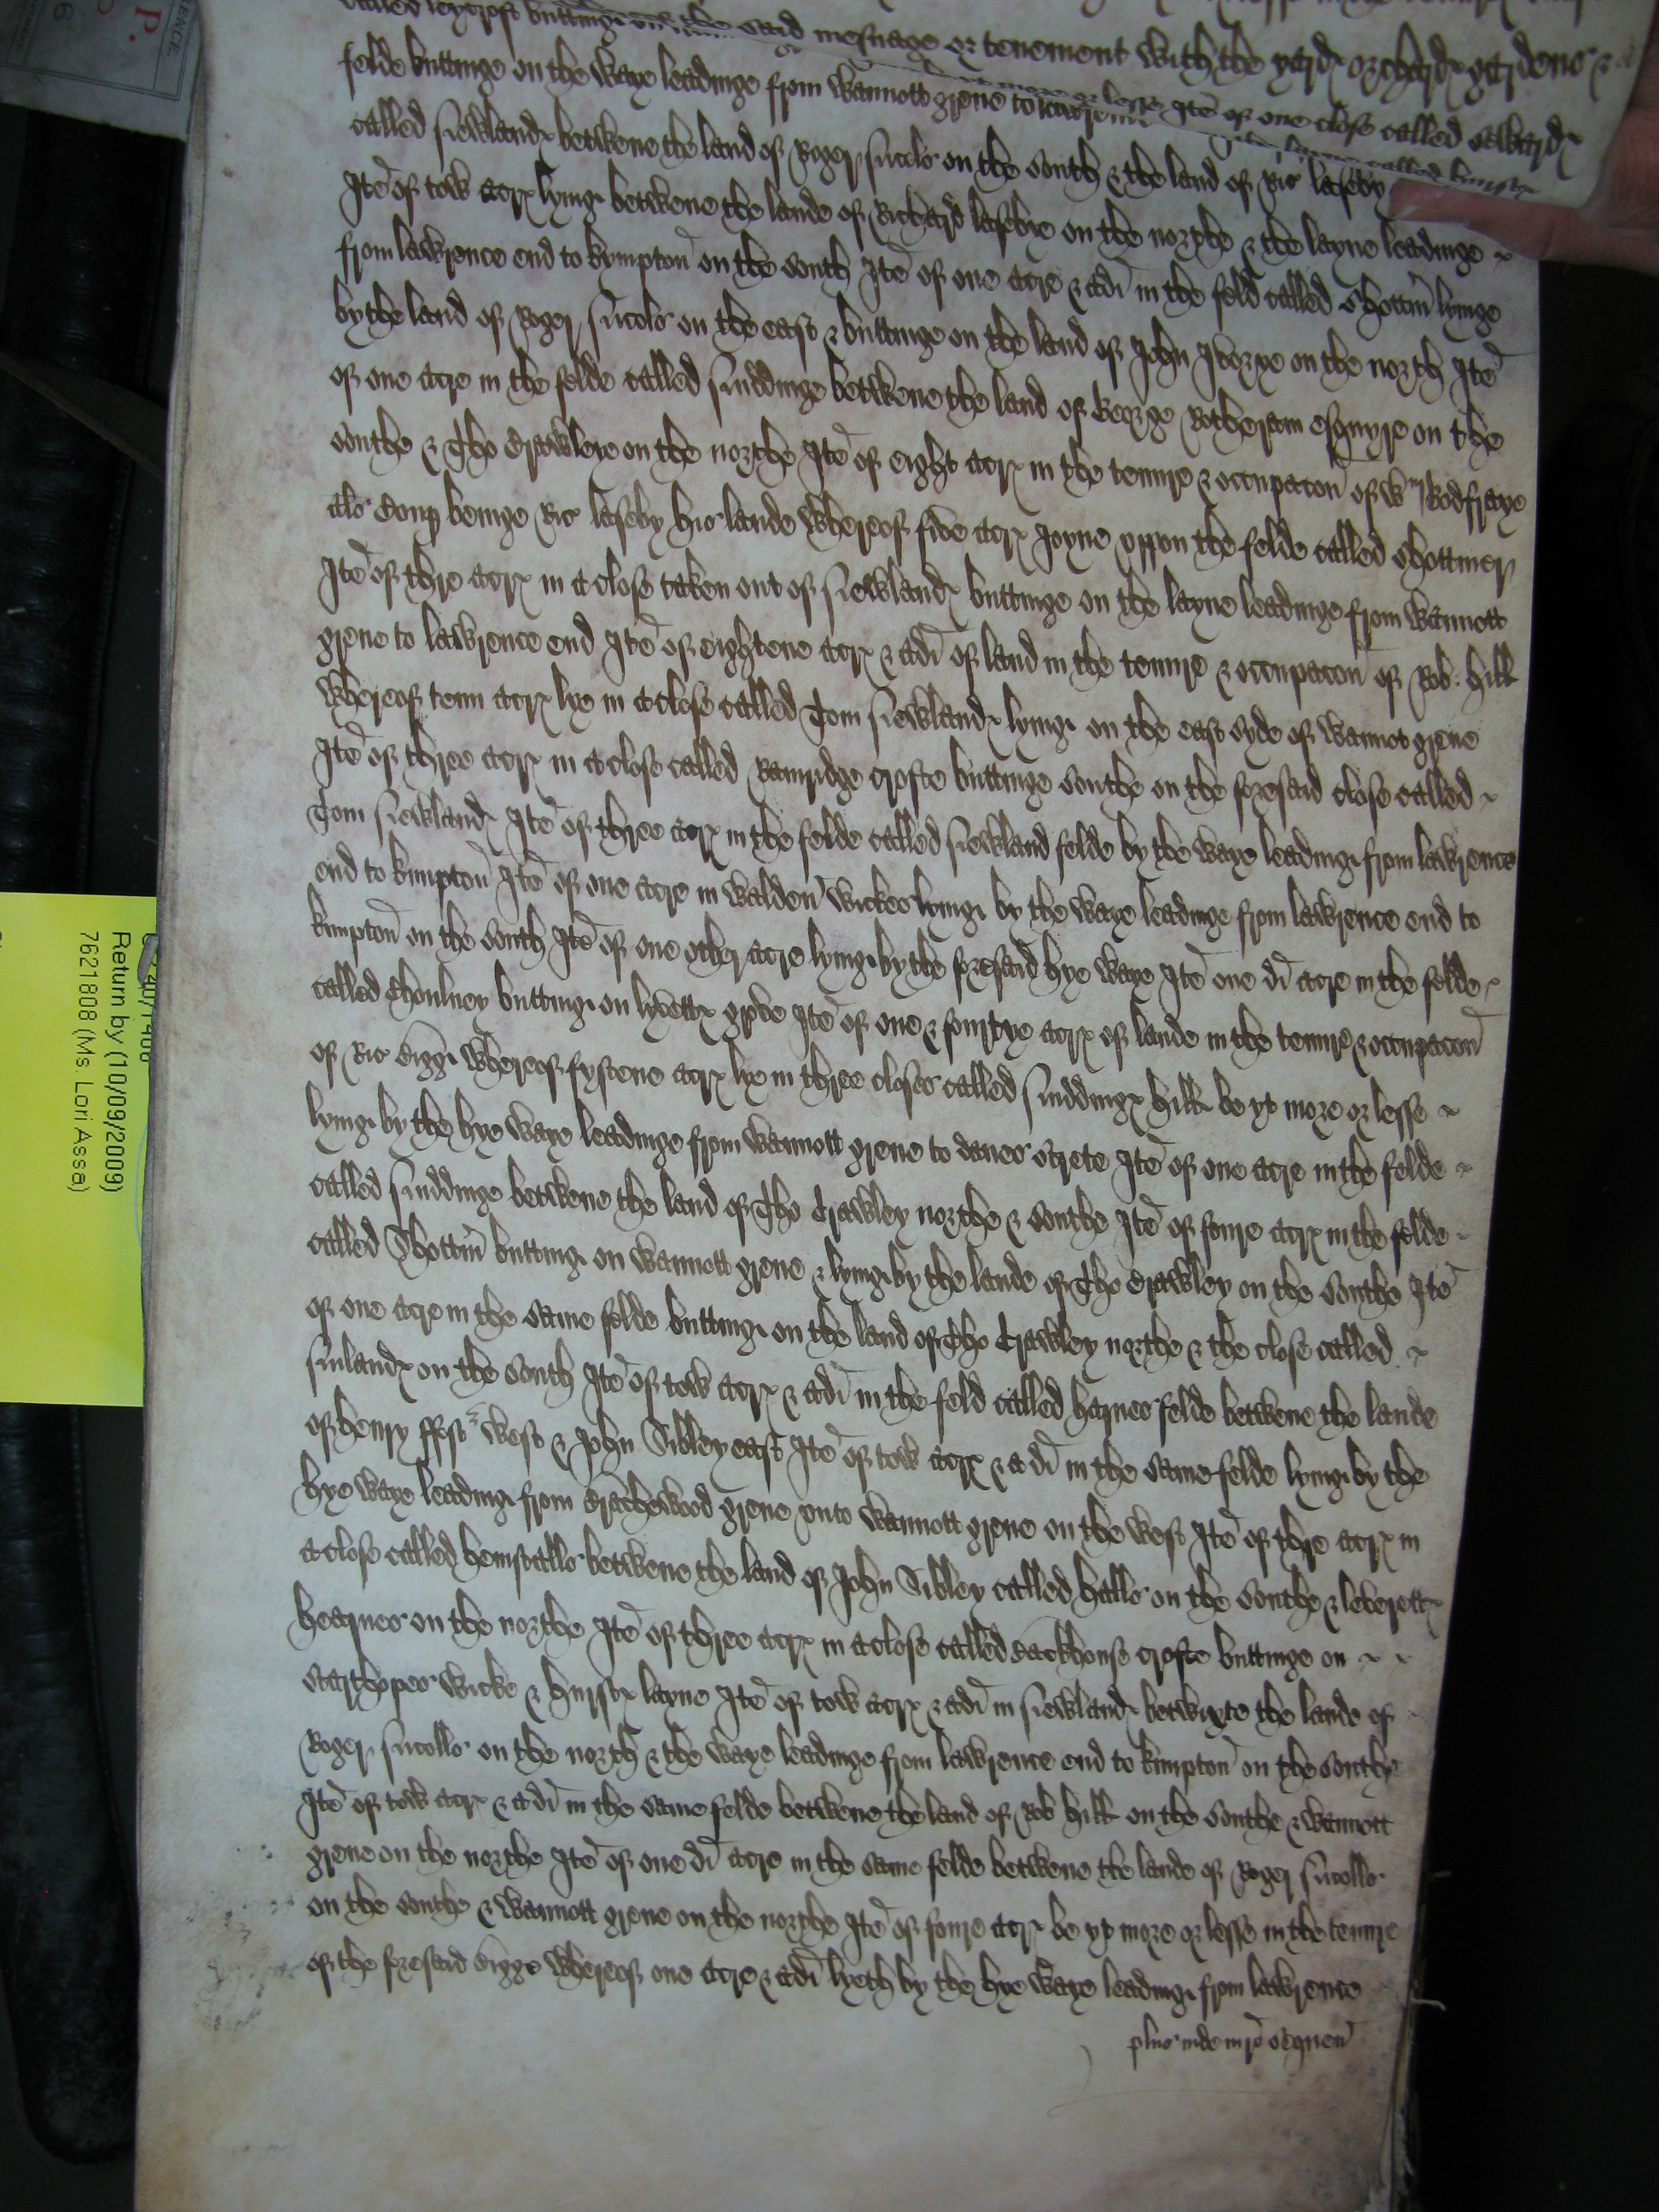 said mesuage or tenement with the yard orchard gardens &
felde buttinge on the waye leadinge from wannott grene to
more or lesse Itē of one close called
called Newland betwene the land of Roger Nicols on the south & the land of Ric Laseby
Itē of tow acr lying betwene the lande of Richard lasebye on the northe & the layne leadinge
from lawrence end to kympton on the south Itē of one acre & a di in the feld called Shottm lyinge
by the land of Roger Nicols on the east & buttinge on the land of John Ivorye on the north Itē
of one acre in the felde called Suddinge betwene the land of George Rotheram esquyre on the
southe & Tho Crawleye on the northe Itē of eight acr in the tenure & occupacon of Wm Godfraye
als Coup beinge Ric laseby his lande whereof five acr Joyne uppon the felde called Shottmer
Itē of thre acr in a close taken out of Newland buttinge on the layne leadinge from wannott
grene to lawrence end Itē of eightene acr & a di of land in the tenure & occupacon of Rob. Hill
whereof tenn acr lye in a close called Tom Newland lying on the east syde of wannot grene
Itē of three acr in a close called Ramridge crofte buttinge southe on the foresaid close called
Tom Newland Itē of three acr in the felde called Newland felde by the waye leading from lawrence
end to kimpton Itē of one acre in walden wickes lying by the waye leadinge from lawrence end to
kimpton on the south Itē of one other acre lying by the foresaid hye waye Itē one di acre in the felde
called Choulney butting on lyvett grove Itē of one & fourtye acr of lande in the tenure & occupacon
of Ric Bigg whereof fyftene acr lye in three closes called Sudding hill be yt more or lesse
lying by the hye waye leadinge from wannott grene to danes strete Itē of one acre in the felde
called Suddinge betwene the land of Tho Crawley northe & southe Itē of foure acr in the felde
called Shottm butting on wannott grene & lying by the lande of Tho Crawley on the southe Itē
of one acre in the same felde butting on the land of Tho Crawley northe & the close called
Nuland on the south Itē of tow acr & a di in the feld called harnes felde betwene the lande
of henry west & John Sibley east Itē of tow acr & a di in the same felde lying by the
hye waye leading from Brachewood grene unto wannott grene on the west Itē of thre acr in
a close called hemstalls betwene the land of John Sibley called halls on the southe & leverett
hearnes on the northe Itē of three acr in a close called backhouse crofte buttinge on
wicke & hurst layne Itē of tow acr & a di in Newland betwixte the lande of
Roger Nicolls on the north & the waye leadinge from lawrence end to kimpton on the southe
Itē of tow acr & a di in the same felde betwene the land of Rob Hill on the southe & wannott
grene on the northe Itē of one di acre in the same felde betwene the lande of Roger Nicolls
on the southe & wannott grene on the northe Itē of foure acr be yt more or lesse in the tenure
of the foresaid bigge whereof one acre & a di lyeth by the hye waye leading from lawrence
plus inde
Return by (10/09/2009)
7621808 (Ms. Lori Assa)